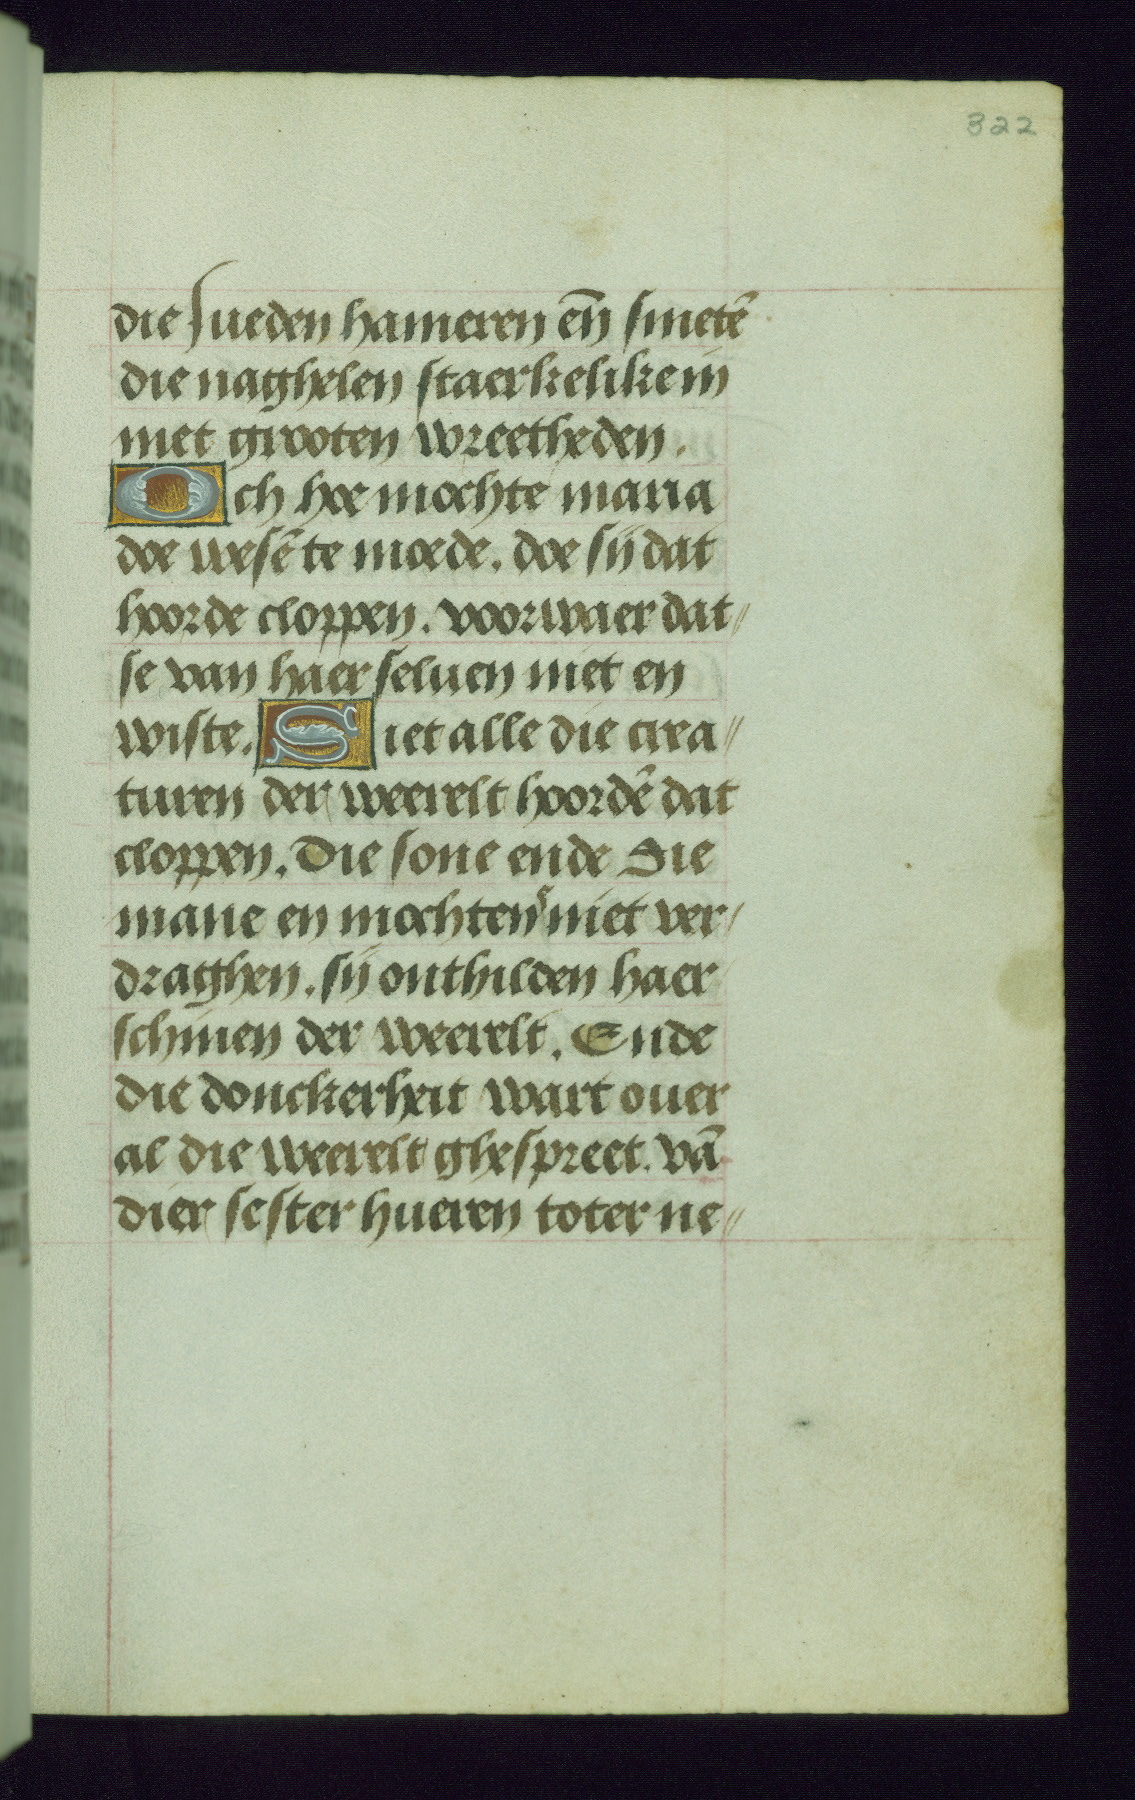 322
die Jueden hameren en̄ smetē
die naghelen staerkelike in
met grooten wreetheden.
Och hoe mochte maria
doe wesē te moede. doe sij dat
hoorde cloppen. voorwaer dat〃
se van haer seluen niet en
wiste. Siet alle die crea〃
turen der weerelt hoordē dat
cloppen. Die sone ende Die
mane en mochtens niet ver〃
draghen. sij onthilden haer
schinen der weerelt. Ende
die donckerheit wart ouer
al die weerelt ghespreet. vā
dier sester hueren toter ne〃